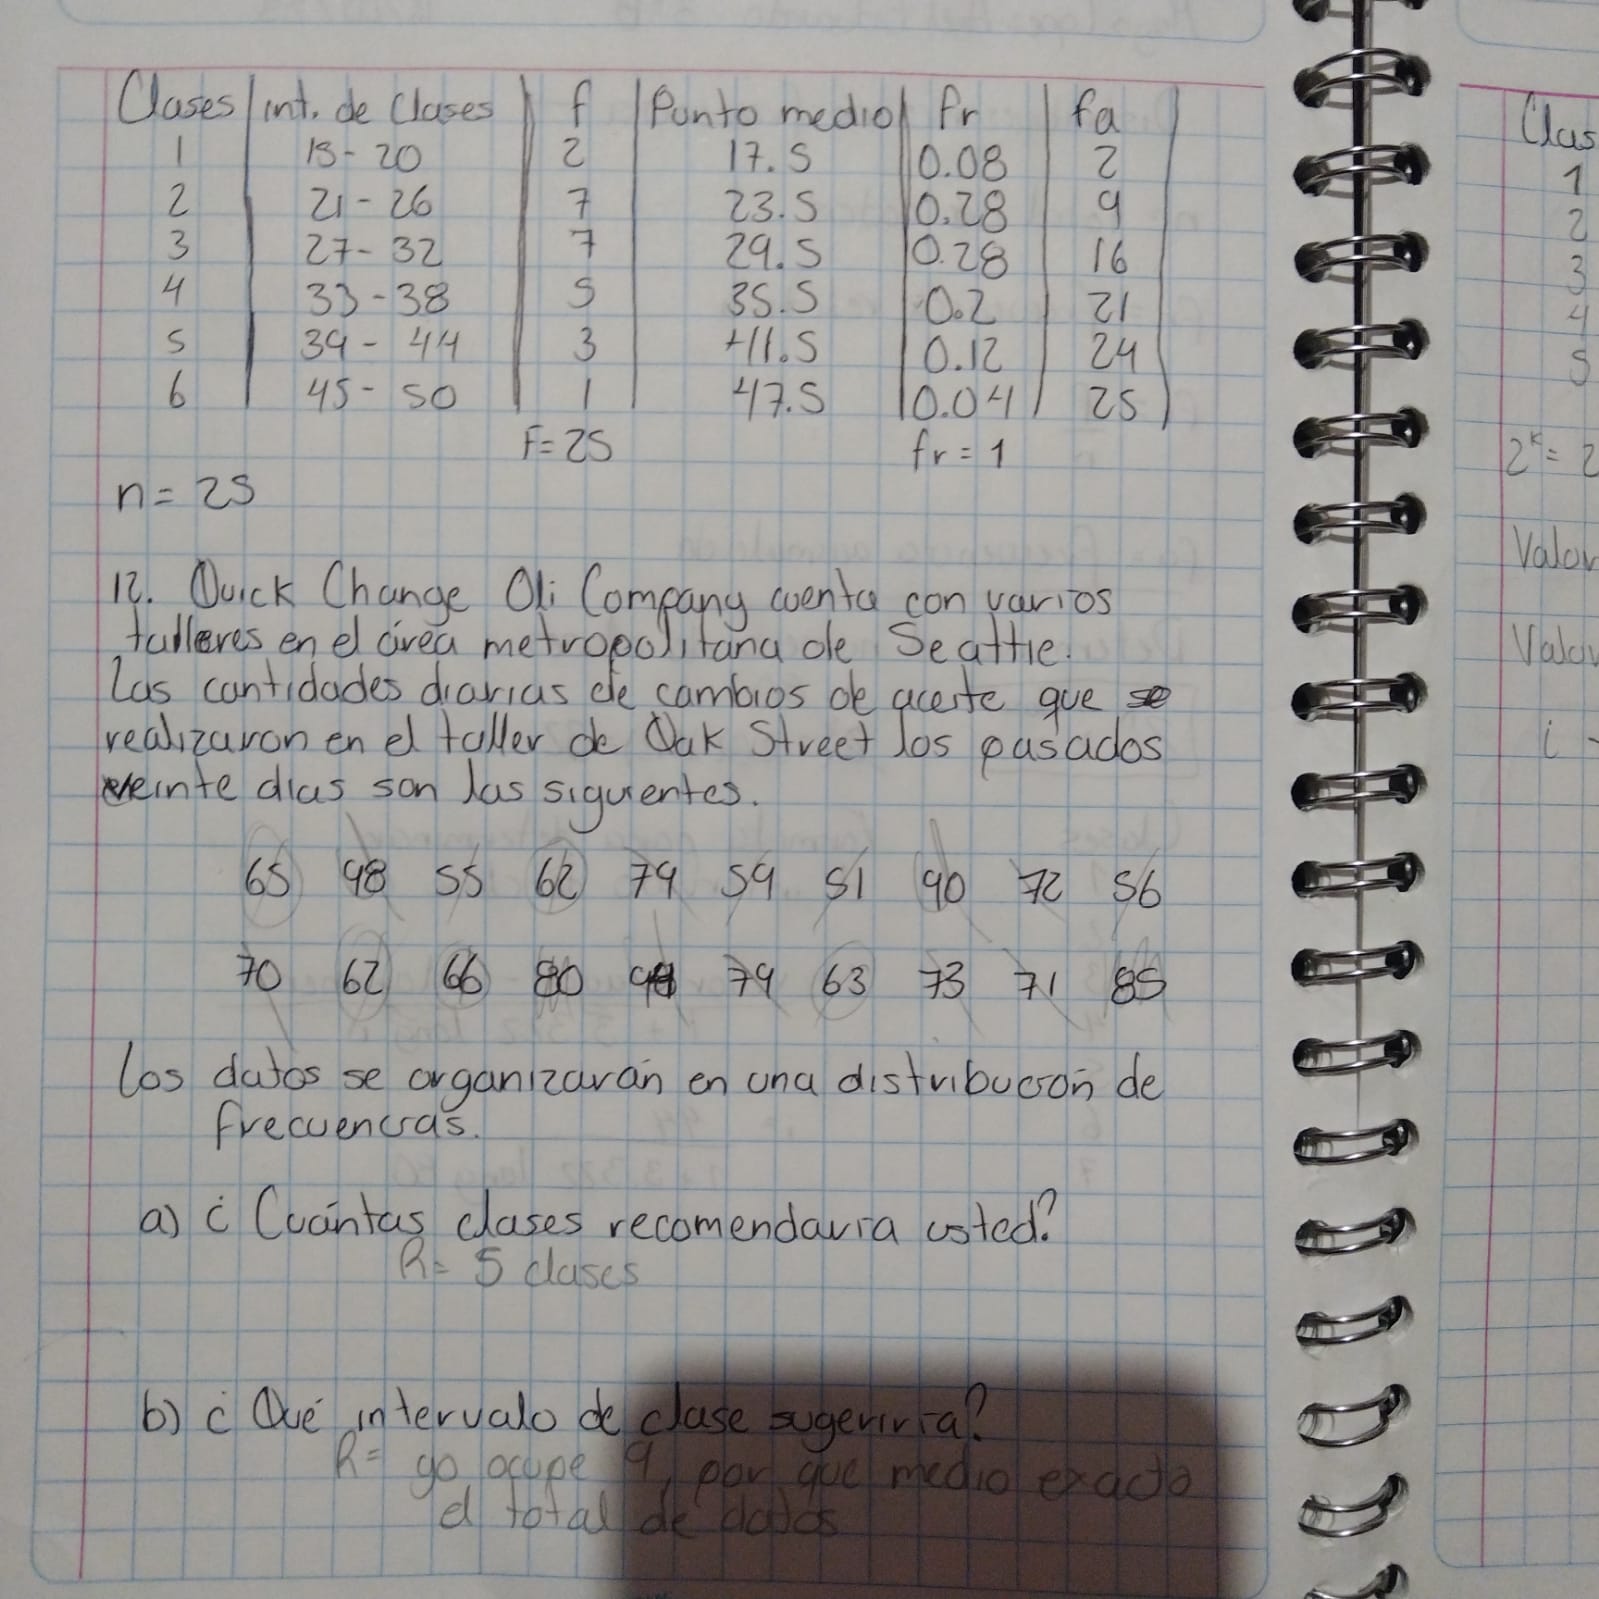 Clases | int. de Clases | f | Punto medio | fr | fa
1 15-20 2 17.5 0.08 2
2 21-26 7 23.5 0.28 9
3 27-32 7 29.5 0.28 16
4 33-38 5 35.5 0.2 21
5 39-44 3 41.5 0.12 24
6 45-50 1 47.5 0.04 25
F=25 fr=1
n=25
12. Quick Change Oli Company cuenta con varios
talleres en el área metropolitana de Seattie.
Las cantidades diarias de cambios de aceite que se
realizaron en el taller de Oak Street los pasados
veinte dias son las siguientes.
65 98 55 62 79 59 51 90 72 56
70 62 66 80 79 63 73 71 85
Los datos se organizarán en una distribución de
frecuencias.
a) ¿Cuántas clases recomendaria usted?
R= 5 clases
b) ¿Qué intervalo de clase sugeriria?
R= yo ocupe 9, por que medio exacto
el total de datos
Clas
1
2
3
4
5
2ᵏ= 2
Valor
Valor
i